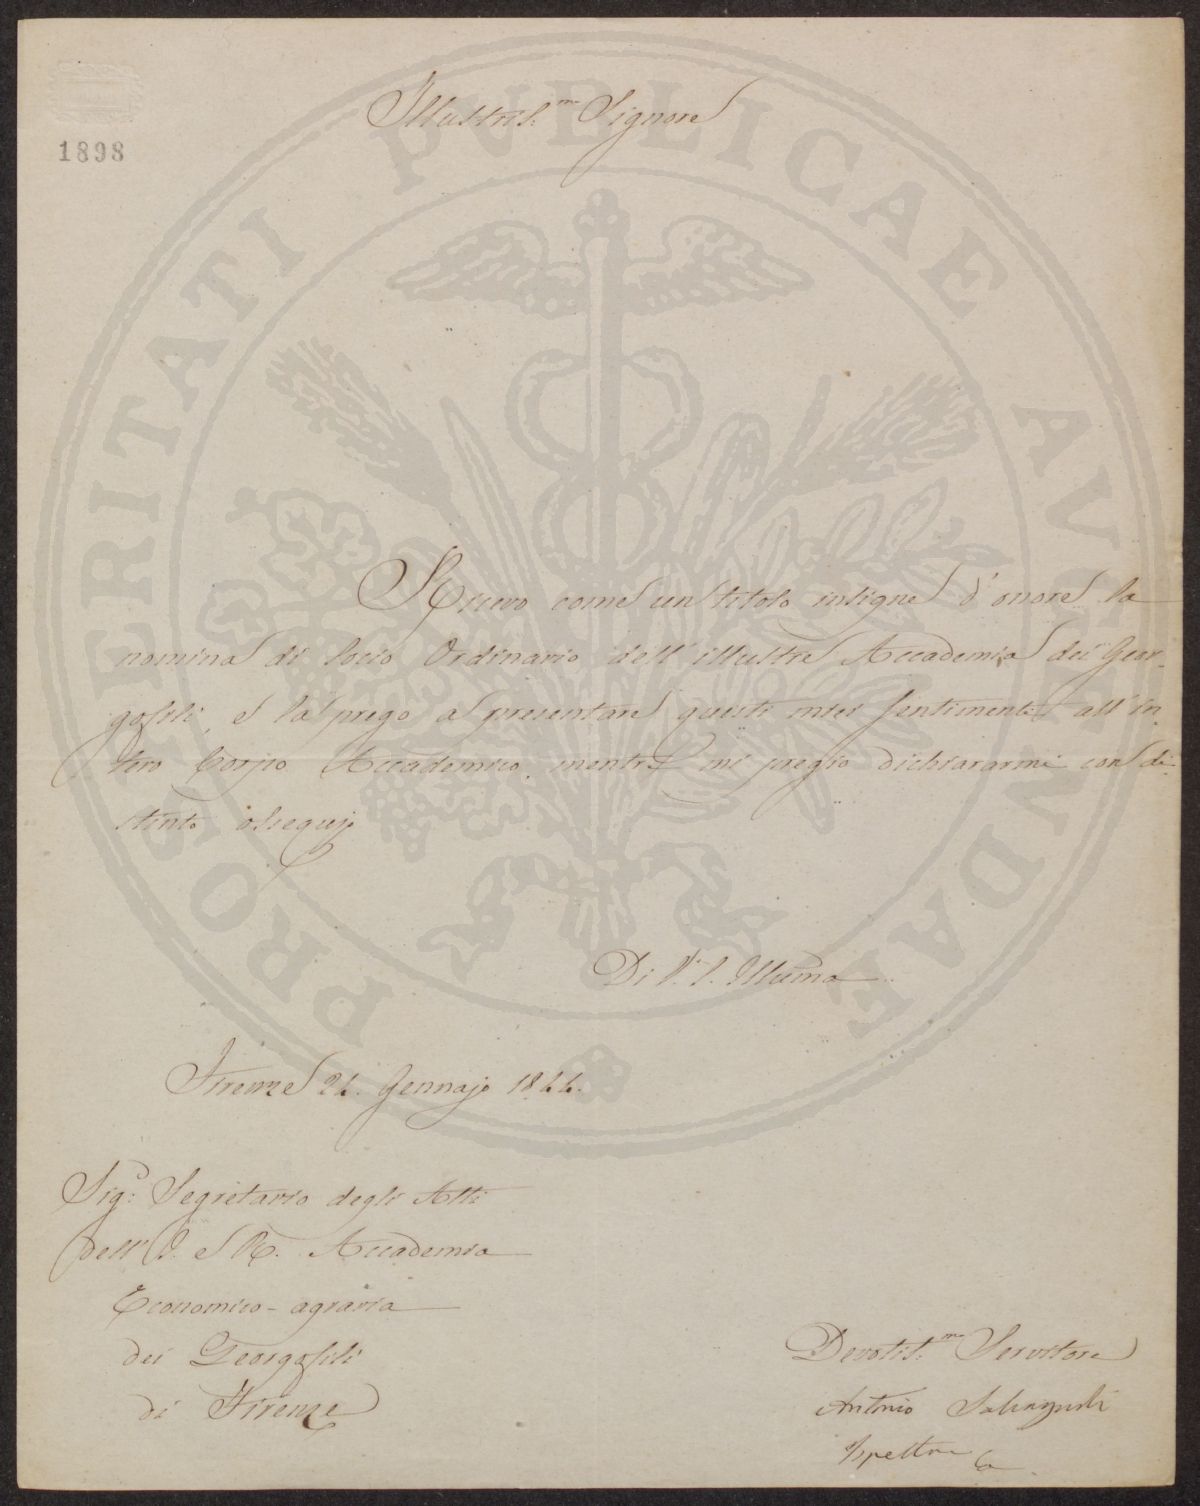 Illustris.mo Signore
1898
PROSPERITATI PVBLICAE AVGENDAE
Ricevo come un titolo insigne d'onore la
nomina di Socio Ordinario dell'illustre Accademia dei Geor-
gofili, e la prego a presentare questi miei sentimenti all'in-
tero Corpo Accademico, mentre mi pregio dichiararmi con di-
stinto ossequio
Di V. S. Illuma
Firenze 24. Gennajo 1844.
Sig: Segretario degli Atti
dell'I. e R. Accademia
Economico-agraria
dei Georgofili
di Firenze
Devotis.mo Servitore
Antonio
Ispettore